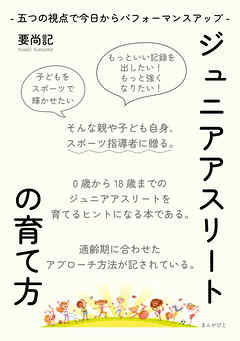 - 五つの視点で今日からパフォーマンスアップ -
ジュニアアスリート
の育て方
要尚記
子どもを
スポーツで
輝かせたい
もっといい記録を
出したい！
もっと強く
なりたい！
そんな親や子ども自身、
スポーツ指導者に贈る。
０歳から18歳までの
ジュニアアスリートを
育てるヒントになる本である。
適齢期に合わせた
アプローチ方法が記されている。
まんがびと